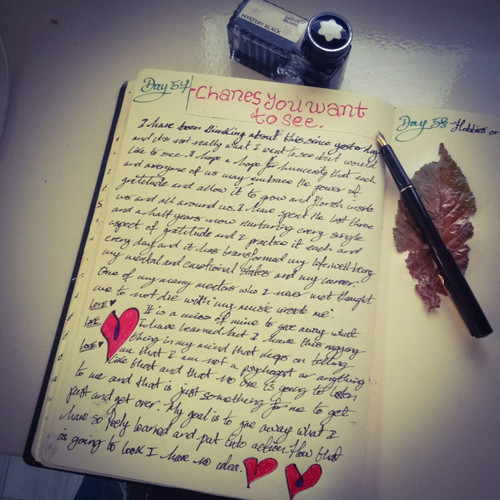 MYSTERY BLACK
MONT
BLANC
Day 57
-Chanes You want
to see.
I have been thinking about this since yesterday
and its not really what I want to see but would
like to see. I hope a hope for humanity that each
and everyone of us may embrace the power of
gratitude and allow it to grow and flourish inside
us and all around us. I have spent the last three
and a half years now nurturing every single
aspect of gratitude and I practice it each and
every day and it has transformed my life, well-being
my mental and emotional states and my career.
One of my many mentors who I never met thought
me to not die with my music inside me.
LOVE It is a miss of mine to give away what
LOVE I have learned but I have this nagging
LOVE thing in my mind that keeps on telling
me that I am not a psychologist or anything
like that and that no one is going to listen
to me and that is just something for me to get
past and get over. My goal is to give away what I
have so freely learned and put into action. How that
is going to look I have no idea.
Day 58 Hobbies or